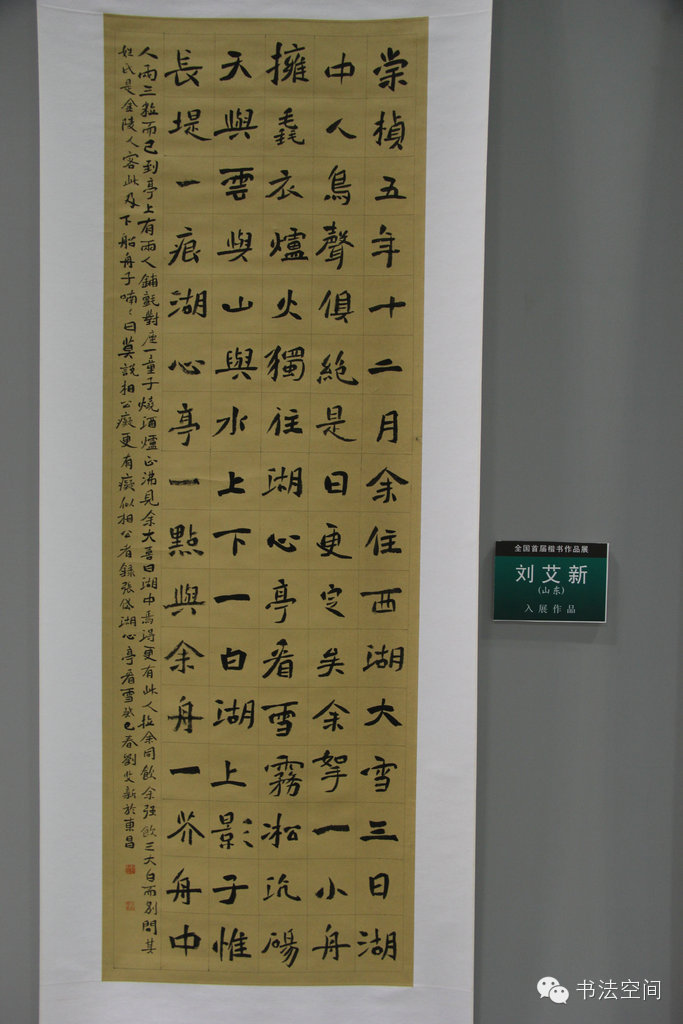 崇楨五年十二月余住西湖大雪三日湖
中人鳥聲俱絕是日更定矣余挐一小舟
擁毳衣爐火獨往湖心亭看雪霧凇沆碭
天與雲與山與水上下一白湖上影子惟
長堤一痕湖心亭一點與余舟一芥舟中
人兩三粒而已到亭上有兩人鋪氈對座一童子燒酒爐正沸見余大喜曰湖中焉得更有此人拉余同飲余強飲三大白而別問其
姓氏是金陵人客此及下船舟子喃〻曰莫說相公癡更有癡似相公者錄張岱湖心亭看雪癸巳春劉艾新於東昌
全国首届楷书作品展
刘艾新
(山东)
入展作品
书法空间